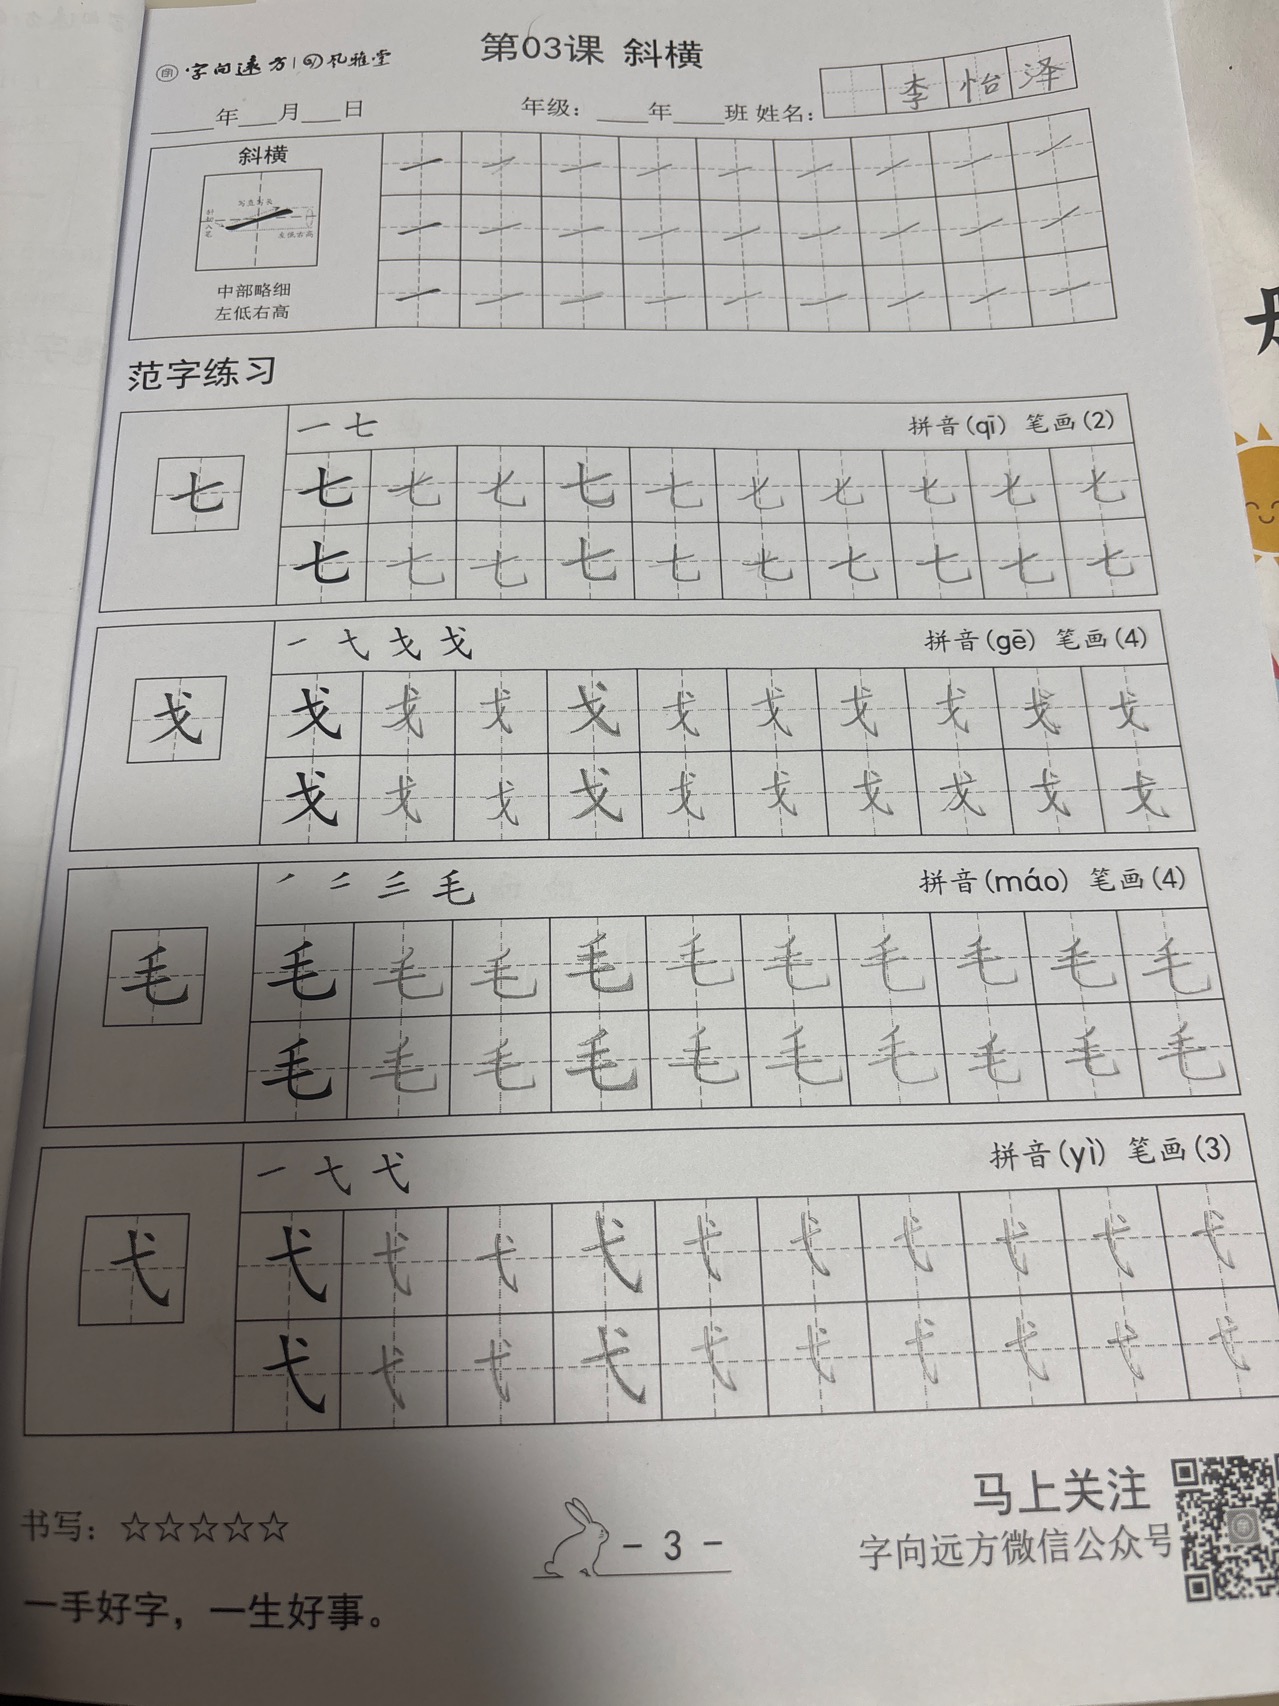 字向远方 | 风雅堂
第03课 斜横
李怡泽
年 月 日 年级: 年 班 姓名:
斜横
中部略细
左低右高
范字练习
一 七 拼音(qī) 笔画(2)
七 七 七 七 七 七 七 七 七 七 七
七 七 七 七 七 七 七 七 七 七
一 弋 戈 戈 拼音(gē) 笔画(4)
戈 戈 戈 戈 戈 戈 戈 戈 戈 戈 戈
戈 戈 戈 戈 戈 戈 戈 戈 戈 戈
毛 拼音(máo) 笔画(4)
毛 毛 毛 毛 毛 毛 毛 毛 毛 毛 毛
毛 毛 毛 毛 毛 毛 毛 毛 毛 毛
一 弋 拼音(yì) 笔画(3)
弋 弋 弋 弋 弋 弋 弋 弋 弋 弋 弋
弋 弋 弋 弋 弋 弋 弋 弋 弋 弋
书写: ☆☆☆☆☆
一手好字，一生好事。
- 3 -
马上关注
字向远方微信公众号